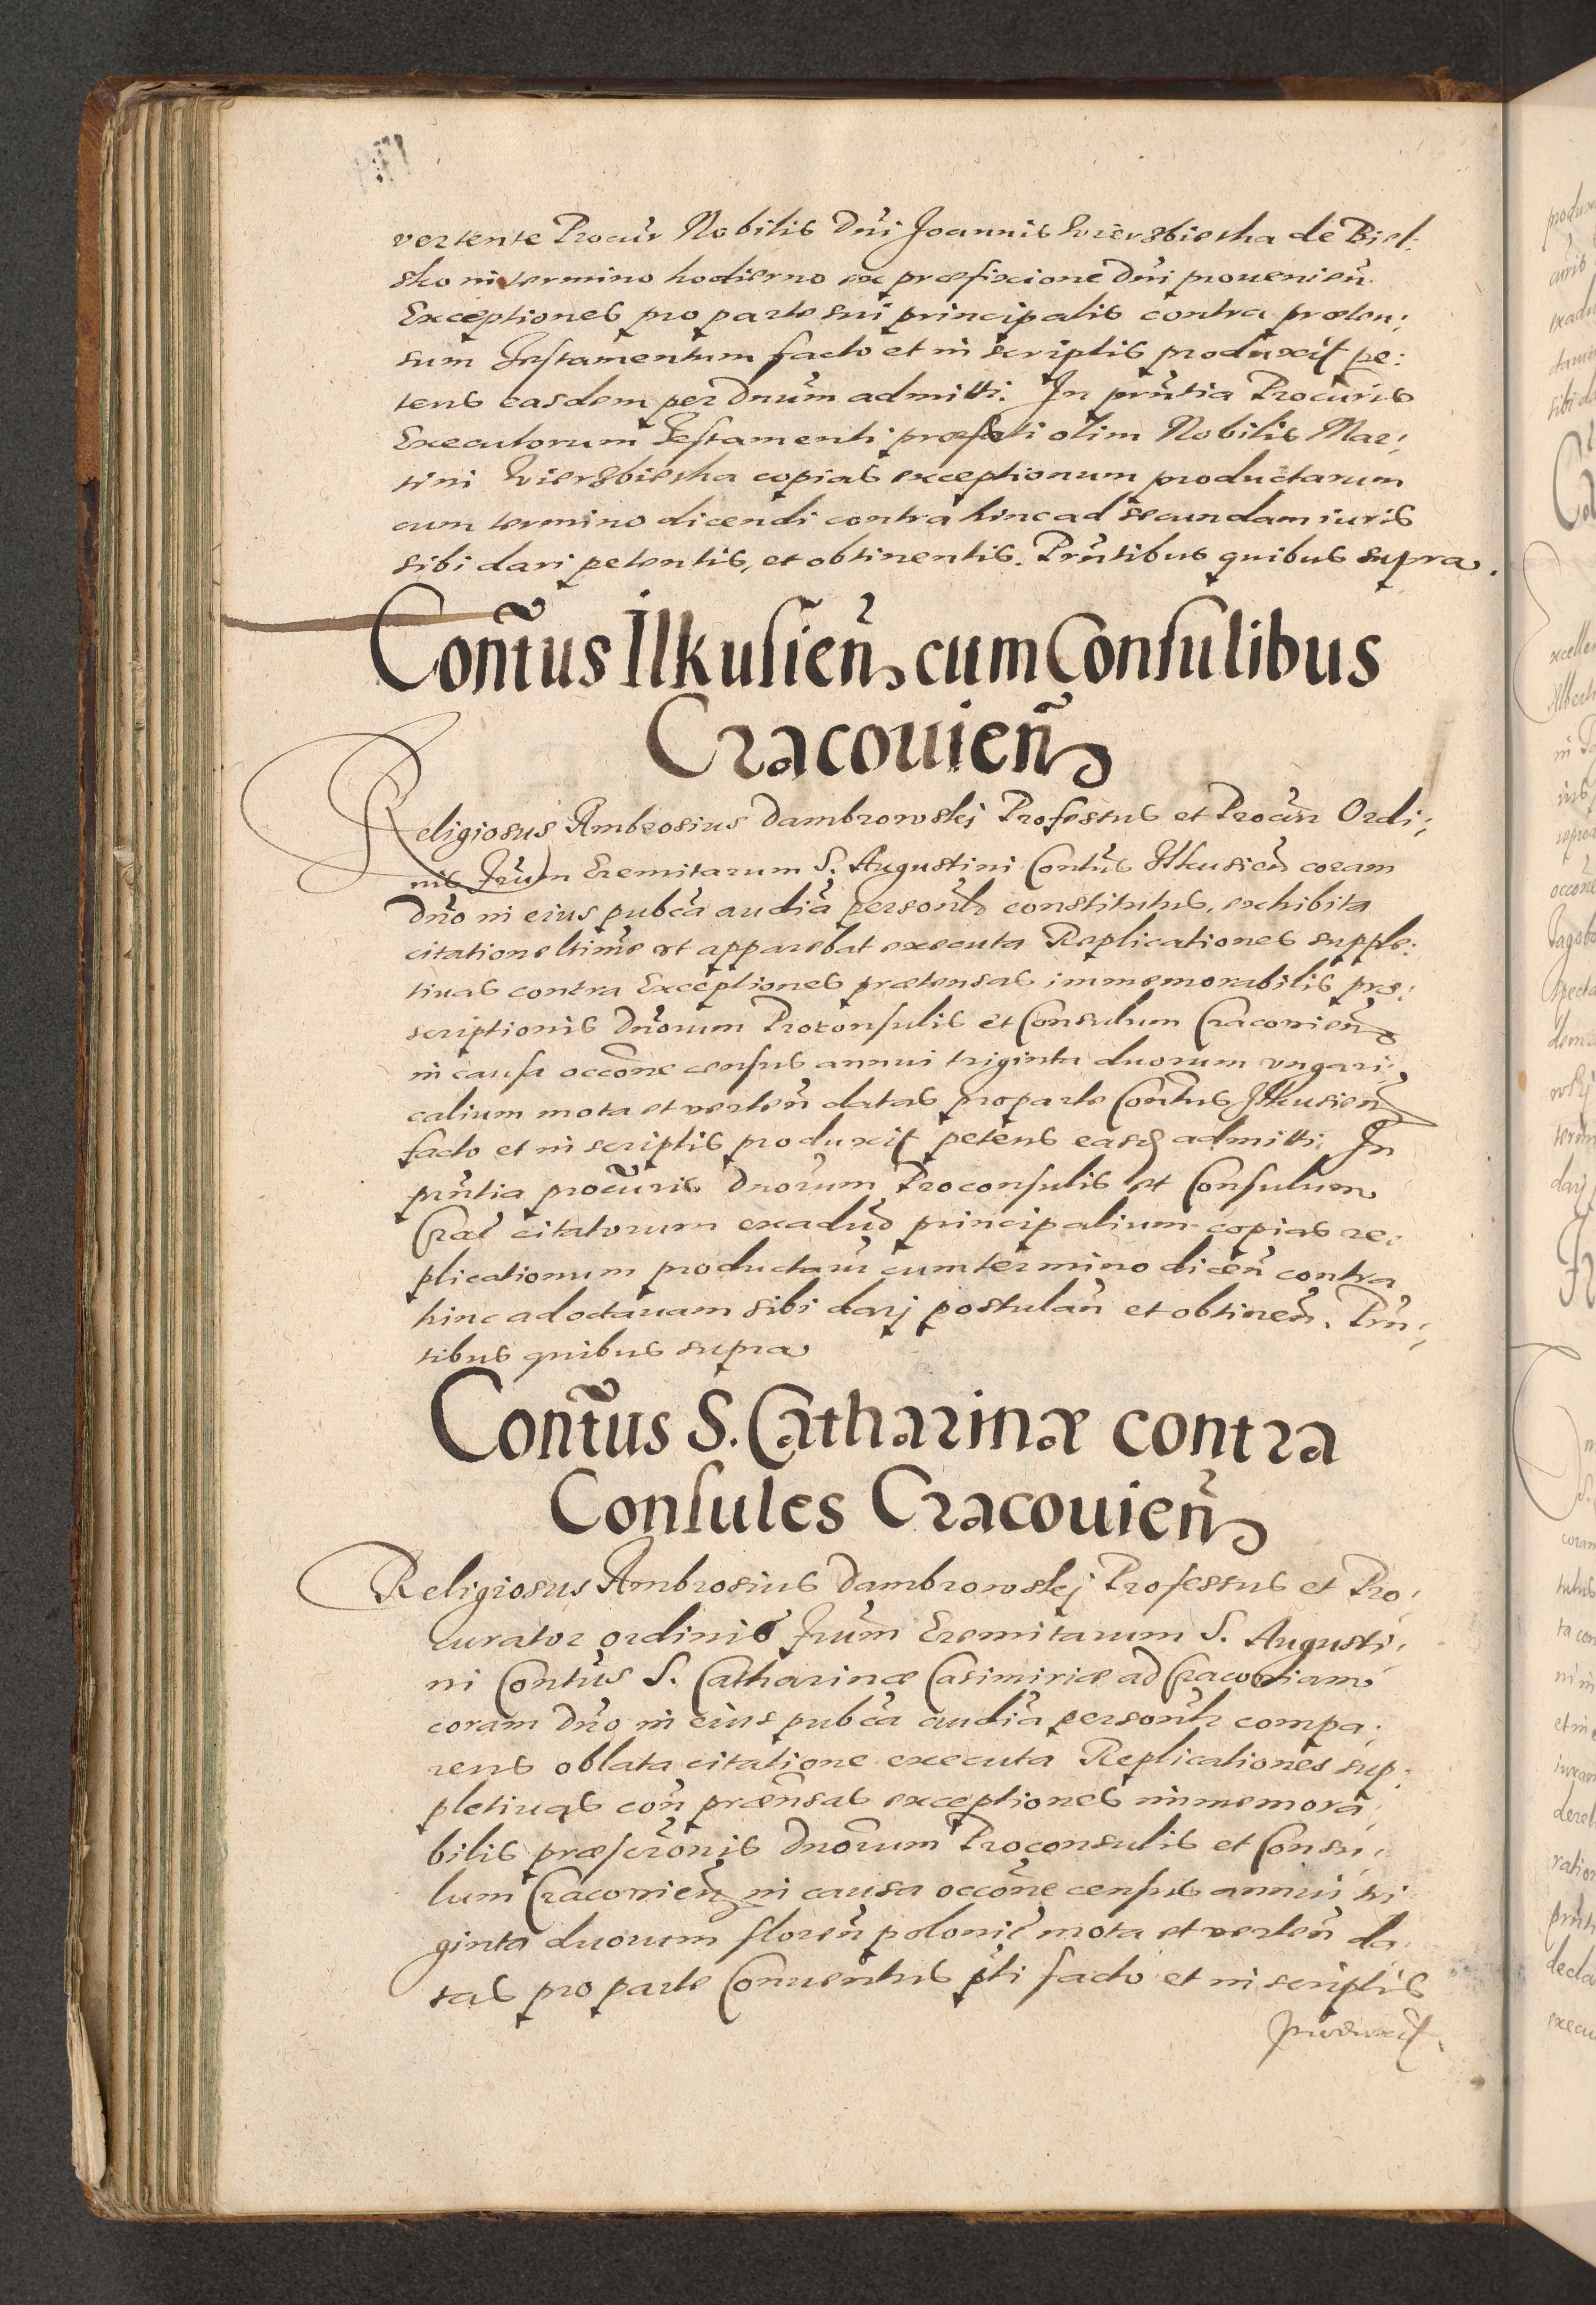 vertente Procur̃ Nobilis Dñi Joannis Wierzbietha de Biel:
sko in termino hodierno ex præfixione Dñi prouenieñ
Exceptiones pro parte sui principalis contra præten:
sum Testamentum facto et in scriptis produxit pe:
tens easdem per Dnũm admitti. In prñtia Procuris
Executorum Testamenti præfati olim Nobilis Mar:
tini Wierzbietha copias exceptionum productarum
cum termino dicendi contra hinc ad secundam iuris
sibi dari petentis, et obtinentis. Prñtibus quibus supra.
Con̄tus Ilkusien̄ cum Consulibus
Cracouien̄
Religiosus Ambrosius Dambrowskj Professus et Procũr Ordi:
nis Frũm Eremitarum S. Augustini Contũs Ilkusieñ coram
Dño in eius pubc̃a audiã personl̃r constitutus, exhibita
citatione ltimẽ vt apparebat executa Replicationes supple:
tiuas contra Exceptiones prætensas immemorabilis præ:
scriptionis Dnõrum Proconsulis et Consulum Cracouieñ
in causa occõne census annui triginta duorum vngari:
calium mota et verteñ datas pro parte Contũs Ilkusieñ
facto et in scriptis produxit petens easd admitti. In
prñtia procũris Dnõrum Proconsulis et Consulum
Crac̃ citatorum ex aduõ principalium copias re:
plicationum productarũ cum termino diceñ contra
hinc ad octauam sibi darj postulañ et obtineñ. Prñ:
tibus quibus supra
Con̄tus S. Catharinæ contra
Consules Cracouien̄
Religiosus Ambrosius Dambrowskj Professus et Pro:
curator ordinis Frũm Eremitarum S. Augusti:
ni Contũs S. Catharinæ Casimiriæ ad Cracouiam
coram Dño in eius pubc̃a audiã personl̃r compa:
rens oblata citatione executa Replicationes sup:
pletiuas coñ præñsas exceptiones immemora:
bilis præscrõnis Dnõrum Proconsulis et Consu:
lum Cracouieñ in causa occõne census annui tri
ginta duorum floreñ polonic̃ mota et verteñ da:
tas pro parte Conuentus pti facto et in scriptis
produxit.